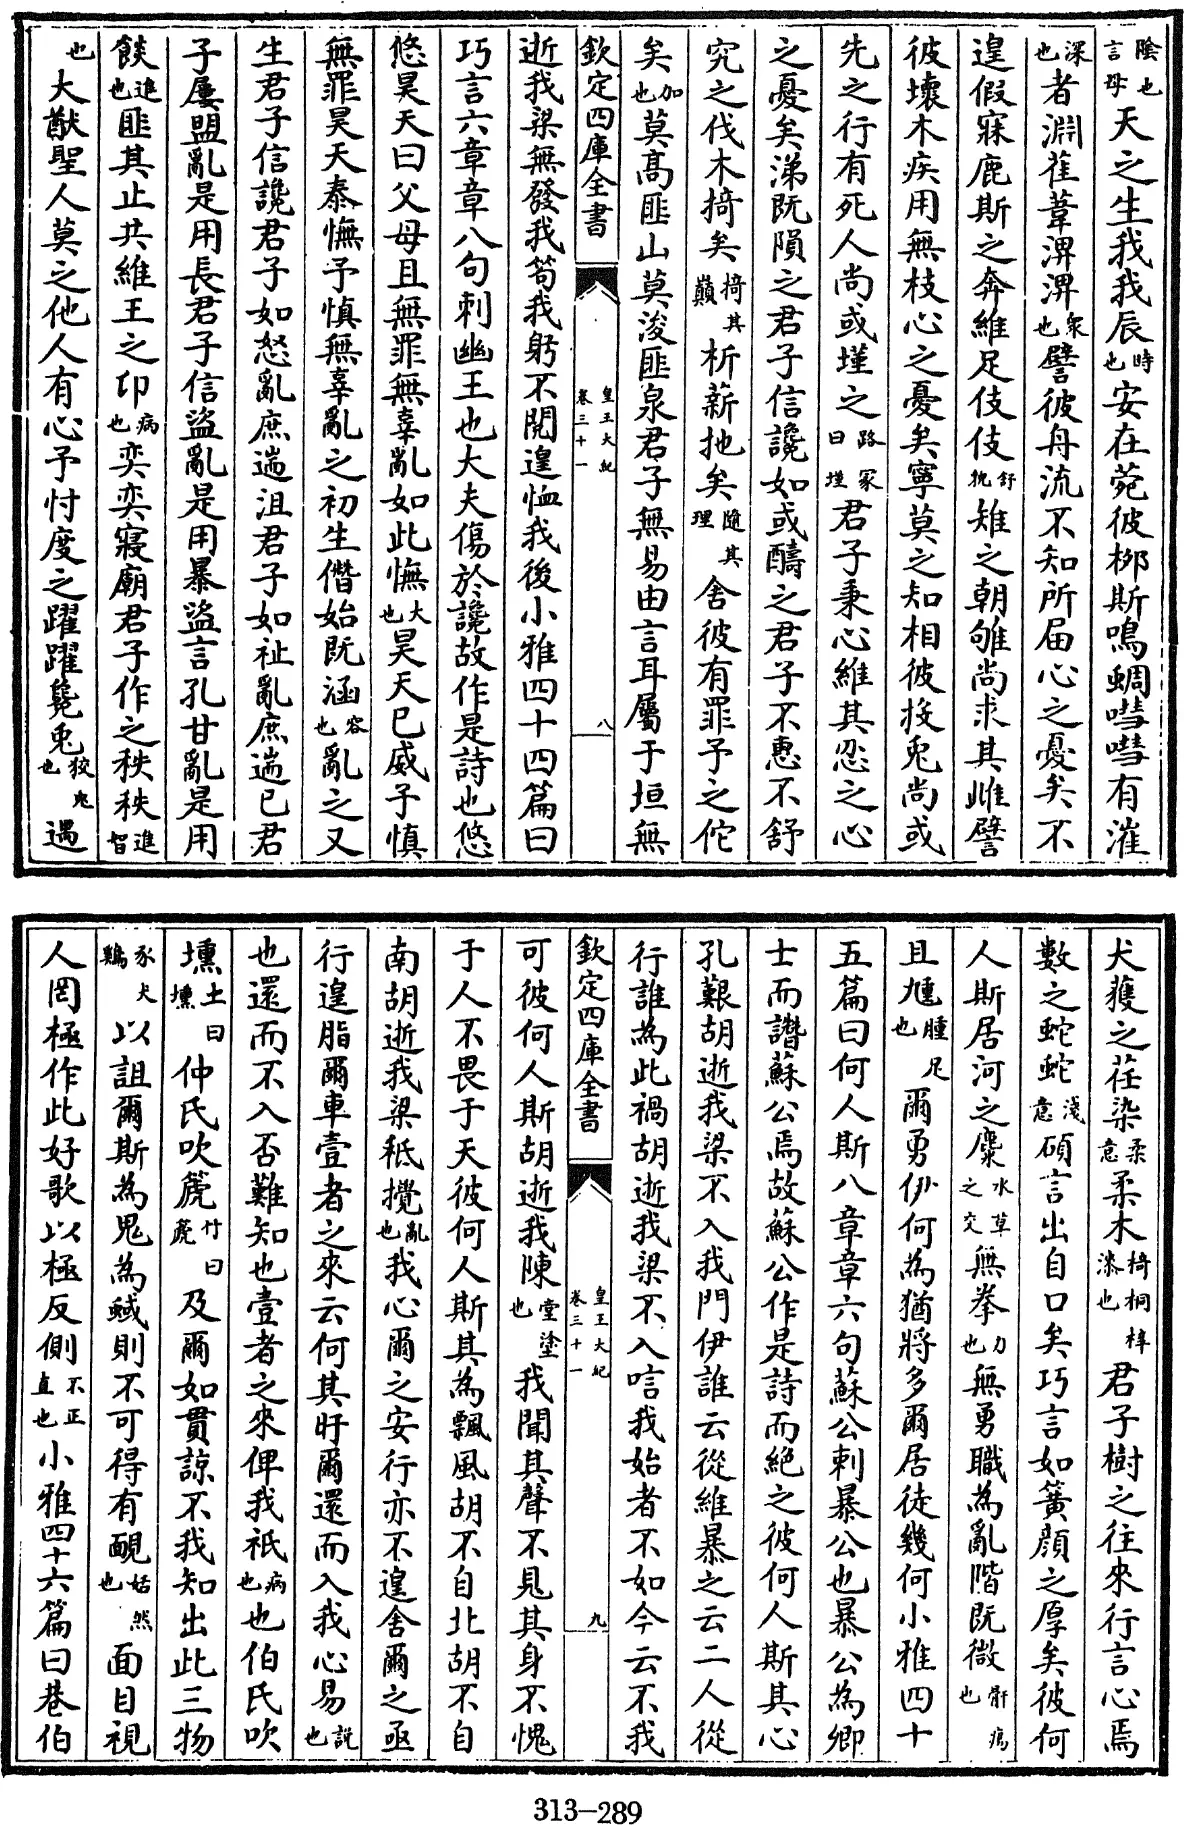 陰也言母天之生我我辰時也安在菀彼柳斯鳴蜩嘒嘒有漼
深也者淵萑葦淠淠衆也譬彼舟流不知所届心之憂矣不
遑假寐鹿斯之奔維足伎伎舒雉之朝雊尚求其雌譬
彼壊木疾用無枝心之憂矣寧莫之知相彼投兎尚或
先之行有死人尚或墐之路冢曰墐君子秉心維其忍之心
之憂矣涕既隕之君子信讒如或醻之君子不惠不舒
究之伐木掎矣掎其巔析薪扡矣隨其理舍彼有罪予之佗
矣加也莫髙匪山莫浚匪泉君子無易由言耳屬于垣無
欽定四庫全書
皇王大紀
卷三十一
八
逝我梁無發我笱我躬不閲遑恤我後小雅四十四篇曰
巧言六章章八句刺幽王也大夫傷於讒故作是詩也悠
悠昊天曰父母且無罪無辜亂如此憮大也昊天已威予慎
無罪昊天泰憮予慎無辜亂之初生僭始既涵容也亂之又
生君子信讒君子如怒亂庶遄沮君子如祉亂庶遄已君
子屢盟亂是用長君子信盜亂是用暴盜言孔甘亂是用
餤進也匪其止共維王之卭病也奕奕寢廟君子作之秩秩進智
也大猷聖人莫之他人有心予忖度之躍躍毚兎狡兎也遇
犬獲之荏染柔意柔木椅桐梓漆也君子樹之往來行言心焉
數之蛇蛇淺意碩言出自口矣巧言如簧顔之厚矣彼何
人斯居河之麋水草之交無拳力也無勇職為亂階既微骭瘍也
且尰腫足也爾勇伊何為猶將多爾居徒幾何小雅四十
五篇曰何人斯八章章六句蘇公刺暴公也暴公為卿
士而譖蘇公焉故蘇公作是詩而絶之彼何人斯其心
孔艱胡逝我梁不入我門伊誰云從維暴之云二人從
行誰為此禍胡逝我梁不入唁我始者不如今云不我
欽定四庫全書
皇王大紀
卷三十一
九
可彼何人斯胡逝我陳堂塗也我聞其聲不見其身不愧
于人不畏于天彼何人斯其為飄風胡不自北胡不自
南胡逝我梁秪攪亂也我心爾之安行亦不遑舍爾之亟
行遑脂爾車壹者之來云何其盱爾還而入我心易説也
也還而不入否難知也壹者之來俾我祇病也也伯氏吹
壎土曰壎仲氏吹箎竹曰箎及爾如貫諒不我知出此三物
豕犬鷄以詛爾斯為鬼為蜮則不可得有靦姡然也面目視
人罔極作此好歌以極反側不正直也小雅四十六篇曰巷伯
313-289